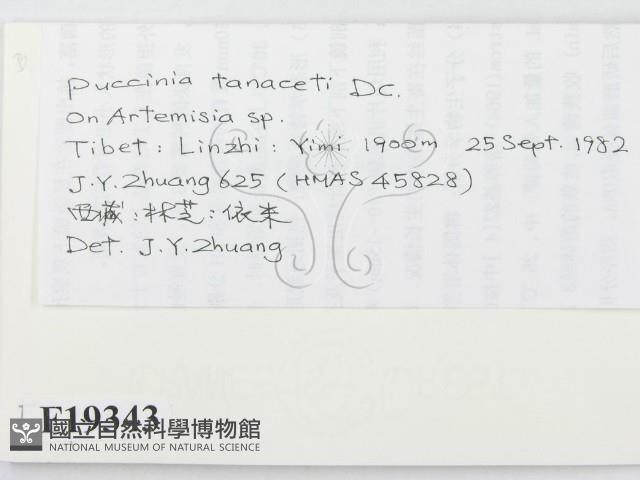 Puccinia tanaceti DC.
On Artemisia sp.
Tibet : Linzhi : Yimi 1900m 25 Sept. 1982
J.Y. Zhuang 625 (HMAS 45828)
西藏 : 林芝 : 依米
Det. J.Y. Zhuang
F19343
國立自然科學博物館
NATIONAL MUSEUM OF NATURAL SCIENCE